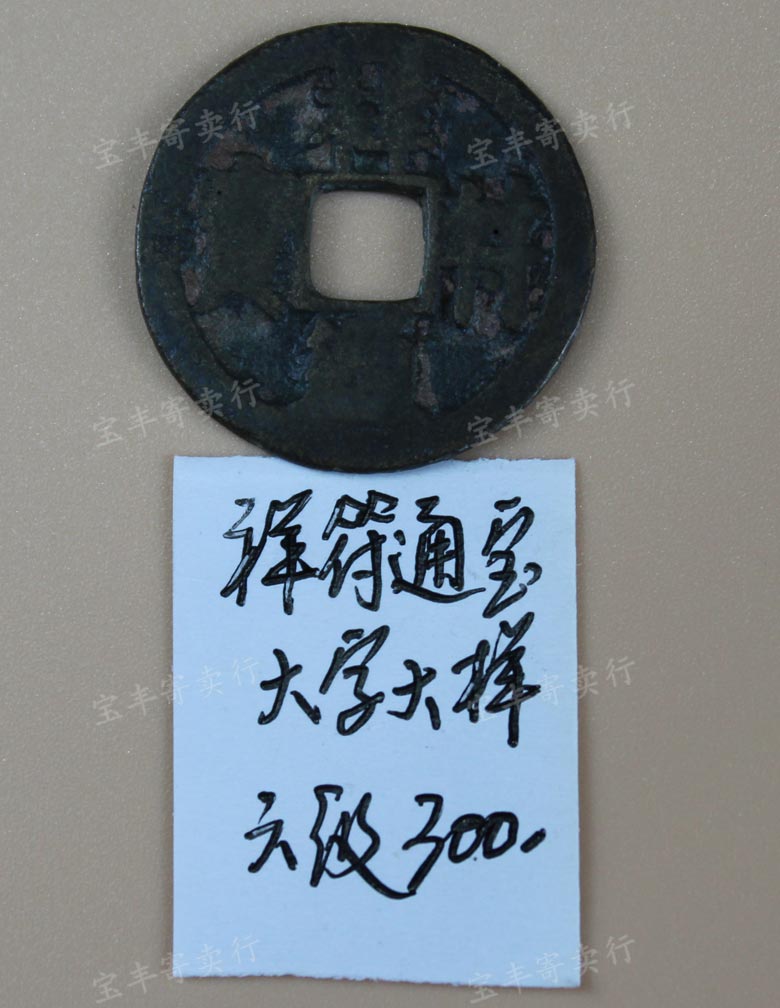 宝丰寄卖行 宝丰寄卖行
符
宝丰寄卖行 宝丰寄卖行
祥符通宝
大字大样
宝丰寄卖行 宝丰寄卖行
六级300.
宝丰寄卖行 宝丰寄卖行